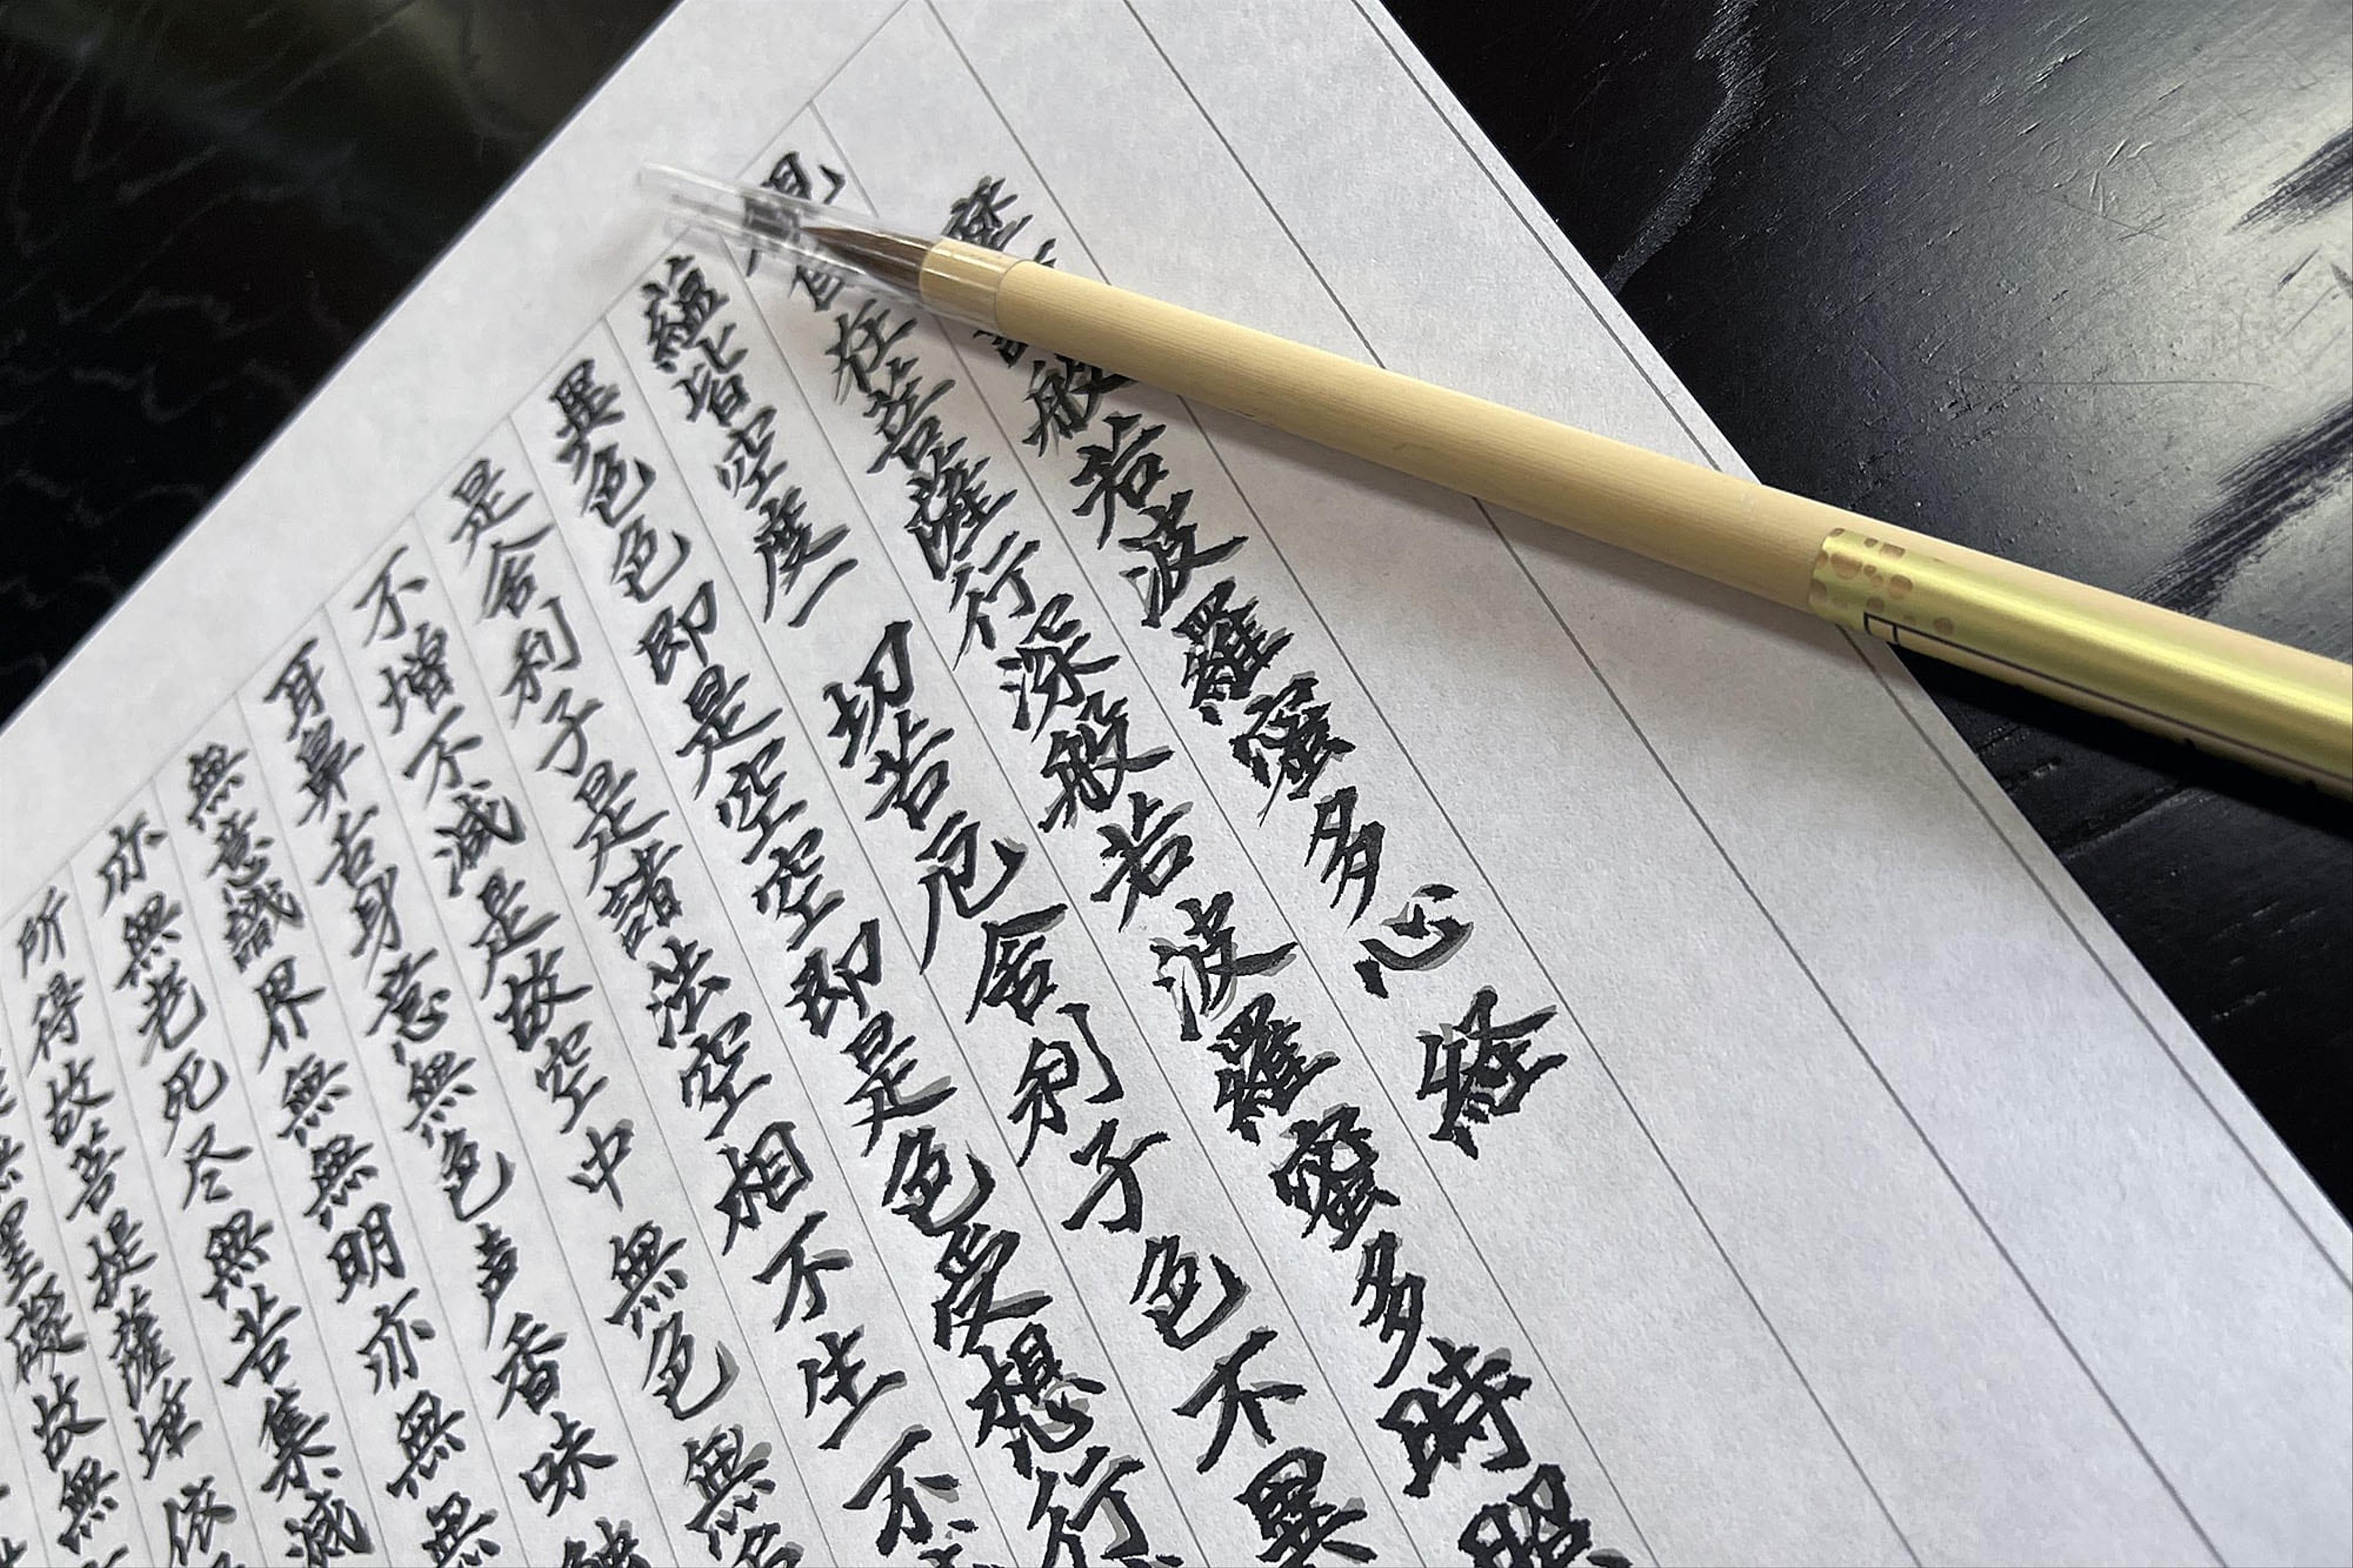 摩般若波羅蜜多心経
観自在菩薩行深般若波羅蜜多時照
蘊皆空度一切苦厄舎利子色不異
異色色即是空空即是色受想行
是舎利子是諸法空相不生不
不増不減是故空中無色無
耳鼻舌身意無色声香味
無意識界無無明亦無無
亦無老死尽無苦集滅
所得故菩提薩埵依
罣礙故無